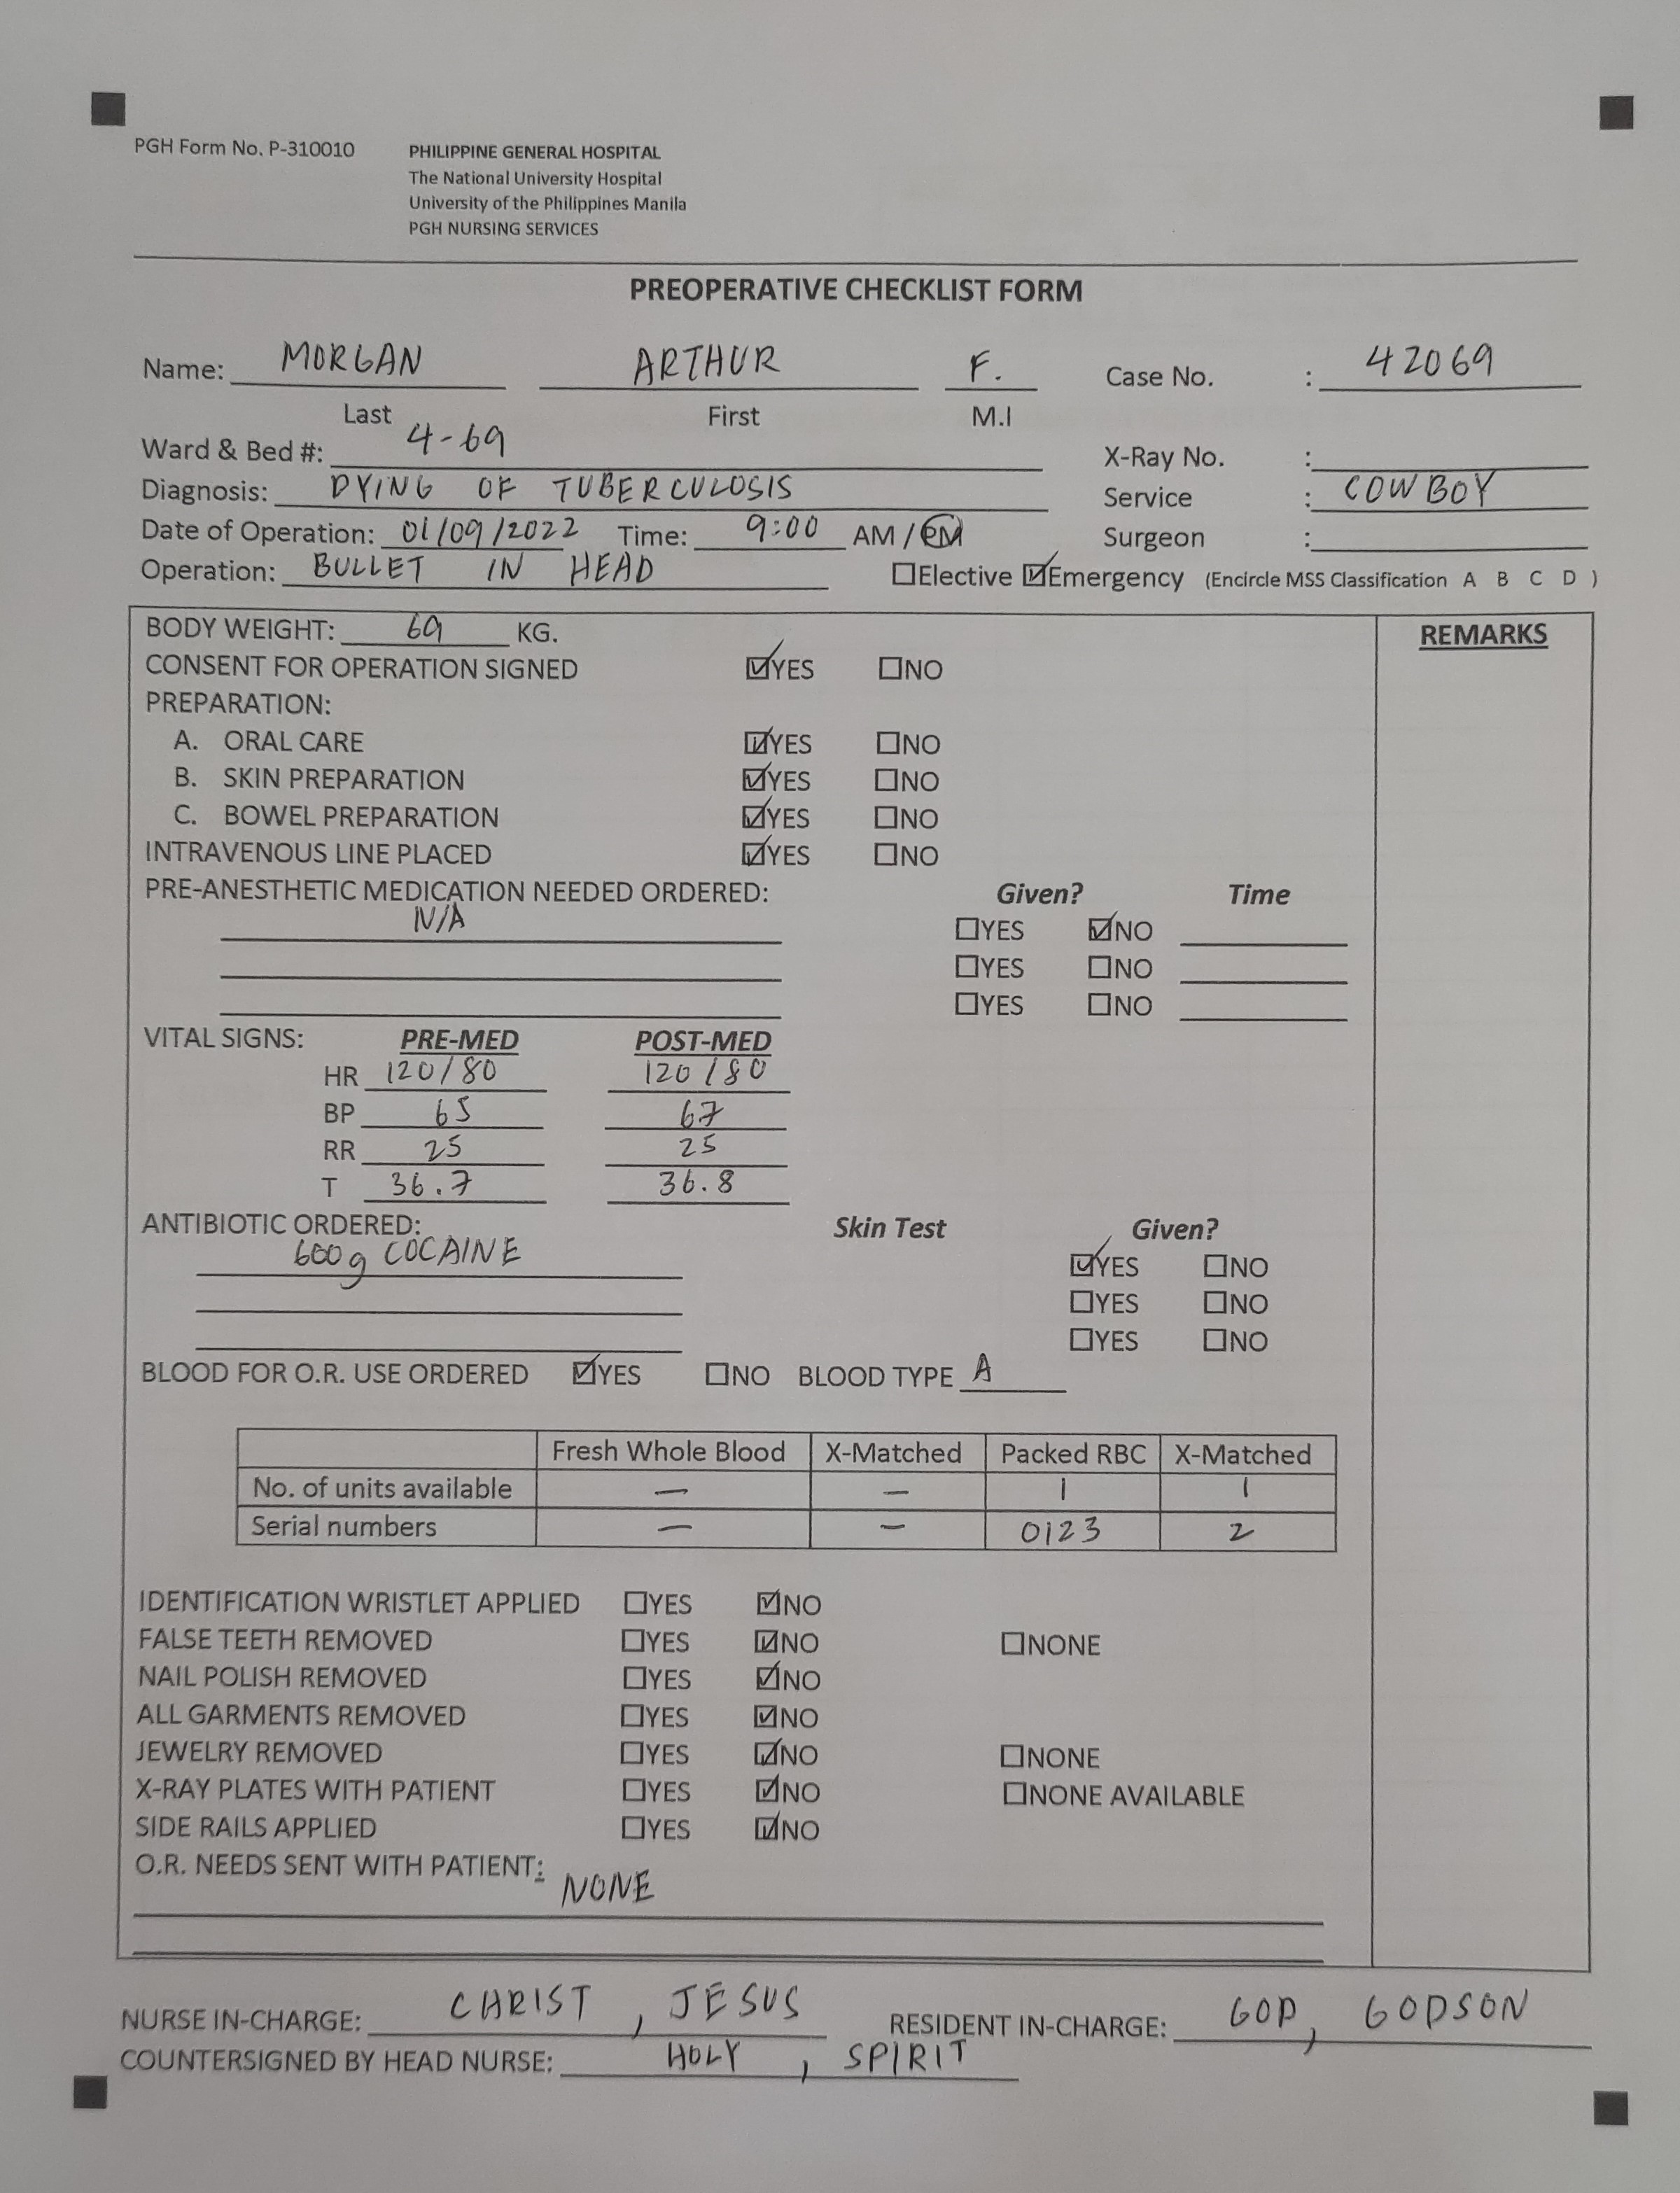 PGH Form No. P-310010 PHILIPPINE GENERAL HOSPITAL
The National University Hospital
University of the Philippines Manila
PGH NURSING SERVICES
PREOPERATIVE CHECKLIST FORM
Name: MORGAN ARTHUR F. Case No. : 42069
Last First M.I
Ward & Bed #: 4-69 X-Ray No. :
Diagnosis: DYING OF TUBERCULOSIS Service : COWBOY
Date of Operation: 01/09/2022 Time: 9:00 AM / PM Surgeon :
Operation: BULLET IN HEAD ☐Elective ☑Emergency (Encircle MSS Classification A B C D )
BODY WEIGHT: 69 KG. REMARKS
CONSENT FOR OPERATION SIGNED ☑YES ☐NO
PREPARATION:
A. ORAL CARE ☑YES ☐NO
B. SKIN PREPARATION ☑YES ☐NO
C. BOWEL PREPARATION ☑YES ☐NO
INTRAVENOUS LINE PLACED ☑YES ☐NO
PRE-ANESTHETIC MEDICATION NEEDED ORDERED: Given? Time
N/A ☐YES ☑NO
☐YES ☐NO
☐YES ☐NO
VITAL SIGNS: PRE-MED POST-MED
HR 120/80 120/80
BP 65 67
RR 25 25
T 36.7 36.8
ANTIBIOTIC ORDERED: Skin Test Given?
600g COCAINE ☑YES ☐NO
☐YES ☐NO
☐YES ☐NO
BLOOD FOR O.R. USE ORDERED ☑YES ☐NO BLOOD TYPE A
Fresh Whole Blood X-Matched Packed RBC X-Matched
No. of units available — — 1 1
Serial numbers — — 0123 2
IDENTIFICATION WRISTLET APPLIED ☐YES ☑NO
FALSE TEETH REMOVED ☐YES ☑NO ☐NONE
NAIL POLISH REMOVED ☐YES ☑NO
ALL GARMENTS REMOVED ☐YES ☑NO
JEWELRY REMOVED ☐YES ☑NO ☐NONE
X-RAY PLATES WITH PATIENT ☐YES ☑NO ☐NONE AVAILABLE
SIDE RAILS APPLIED ☐YES ☑NO
O.R. NEEDS SENT WITH PATIENT:
NONE
NURSE IN-CHARGE: CHRIST , JESUS RESIDENT IN-CHARGE: GOD, GODSON
COUNTERSIGNED BY HEAD NURSE: HOLY , SPIRIT